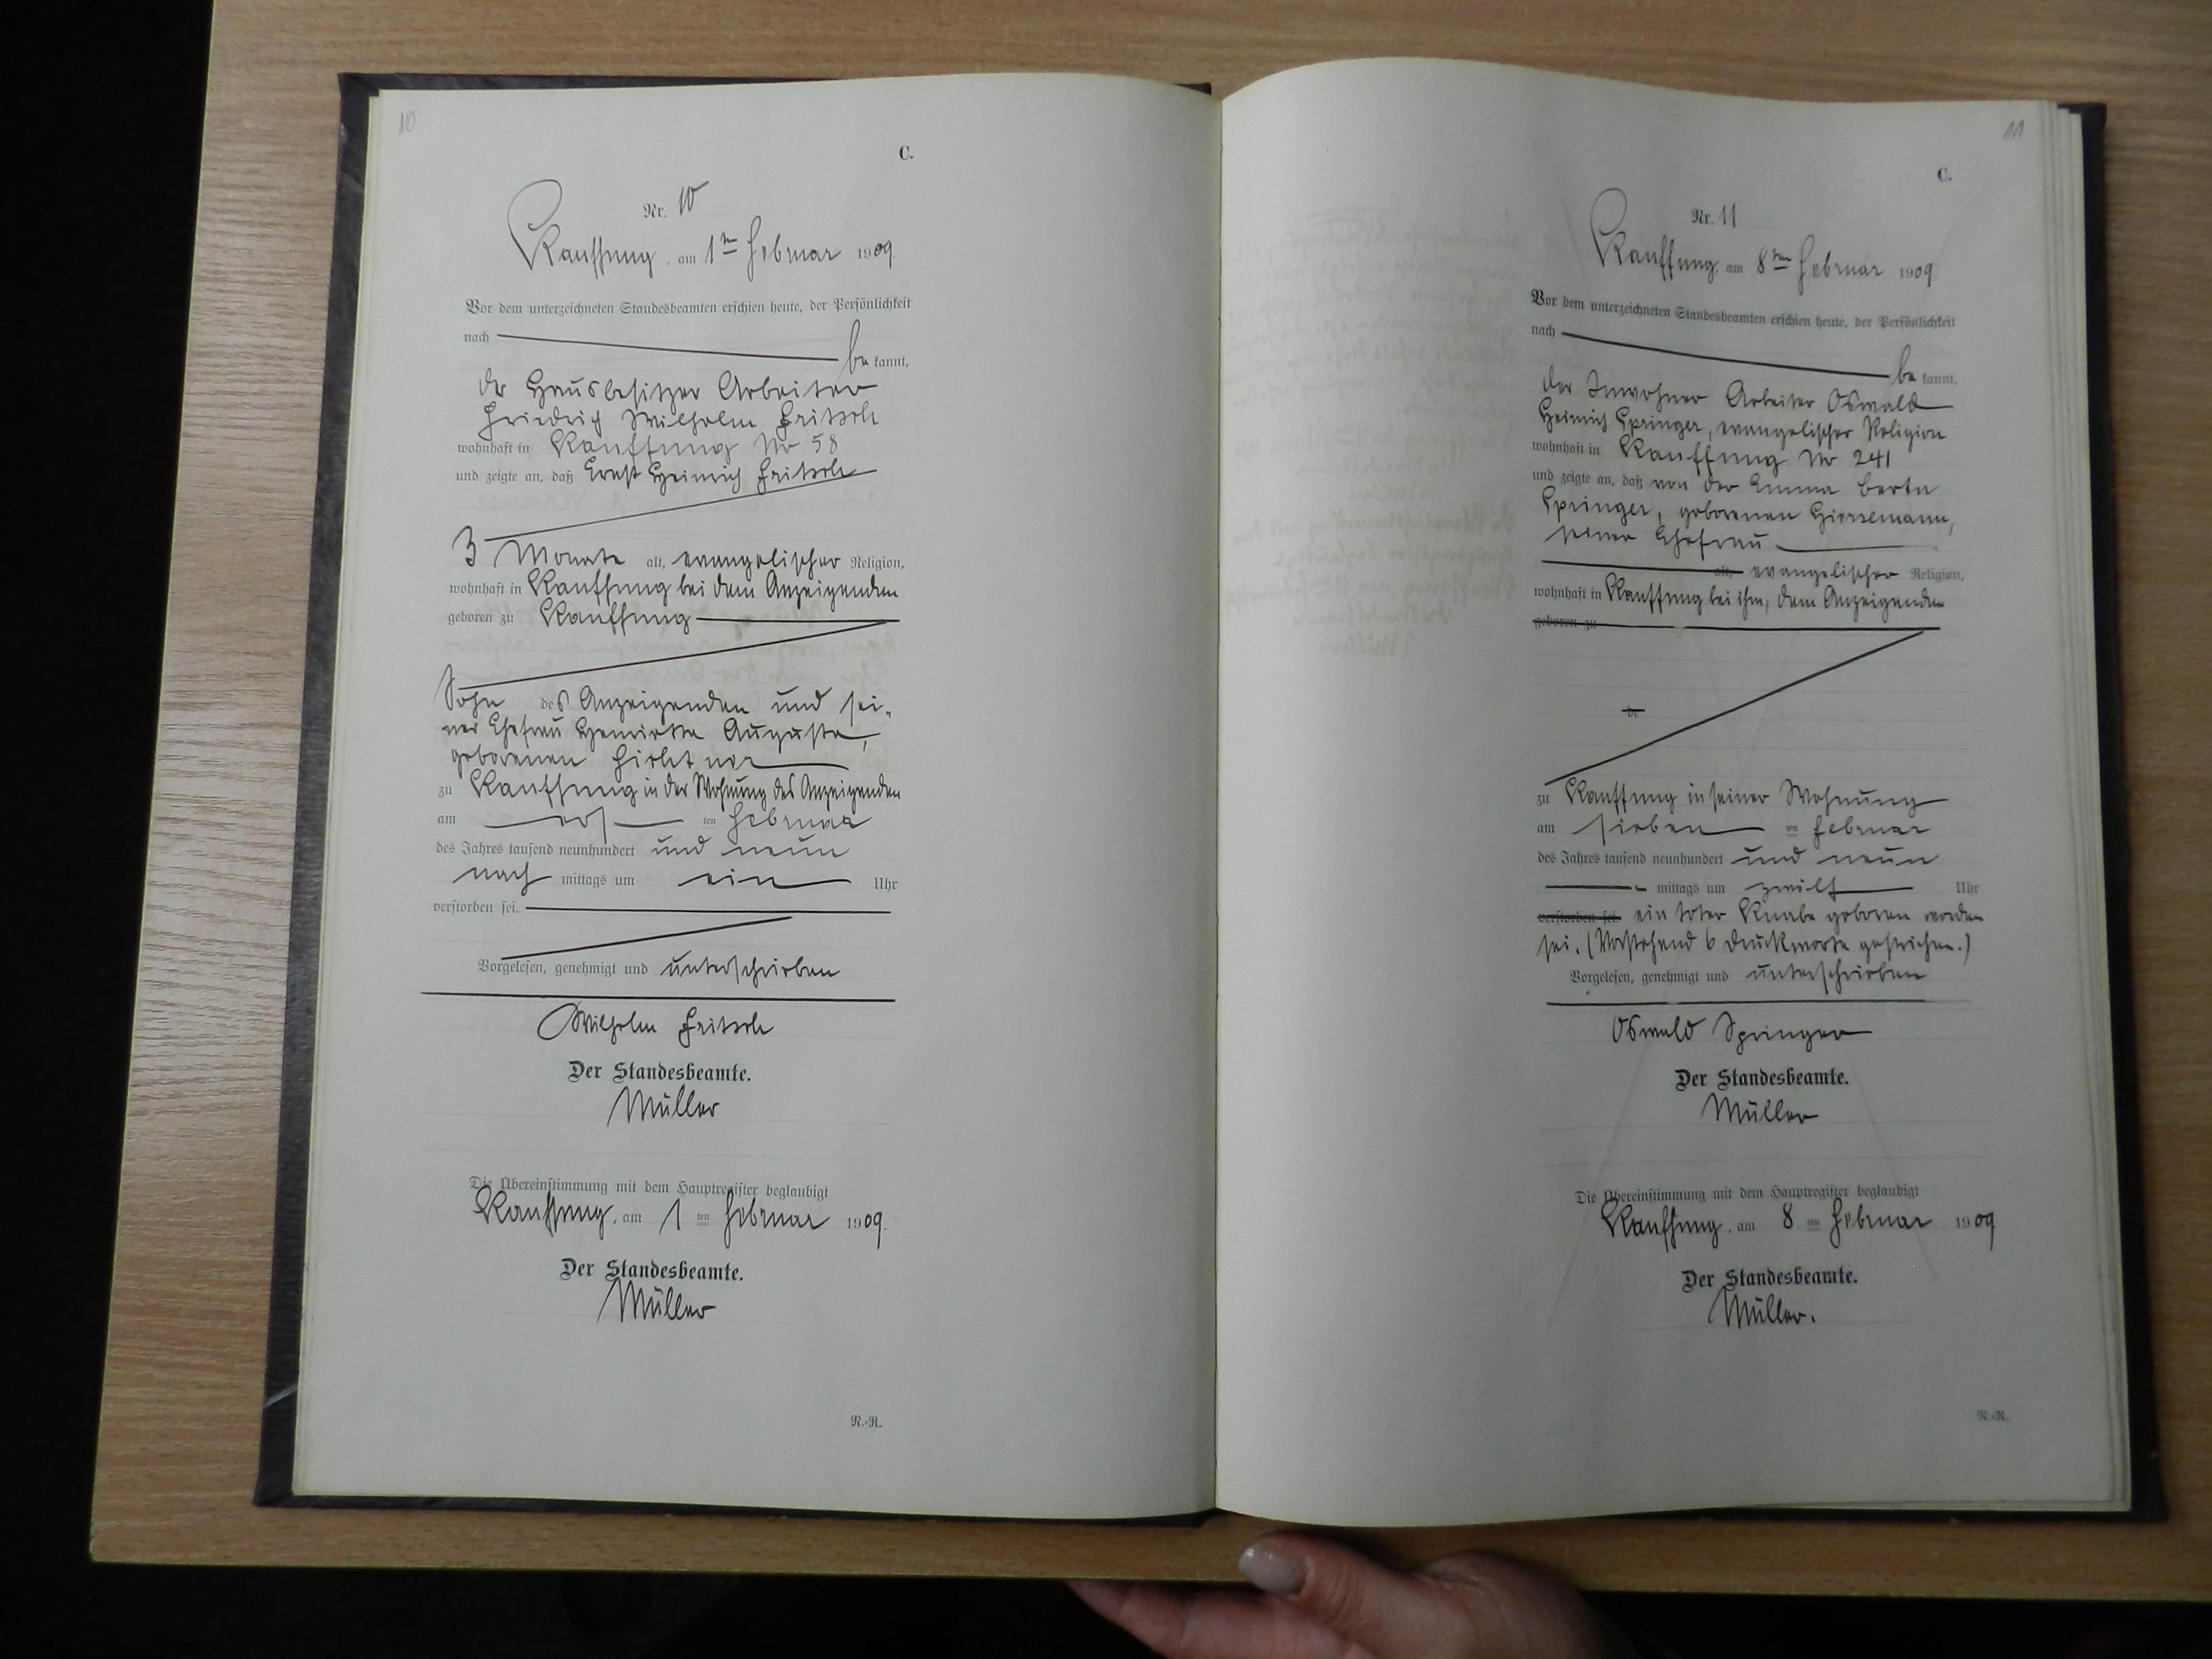 10
C.
Nr. 10
Kauffung, am 1ten Februar 1909.
Vor dem unterzeichneten Standesbeamten erschien heute, der Persönlichkeit
nach be kannt,
der Hausbesitzer Arbeiter
Friedrich Wilhelm Fritsch
wohnhaft in Kauffung Nr 58
und zeigte an, daß Ernst Heinrich Fritsch
3 Monate alt, evangelischer Religion,
wohnhaft in Kauffung bei dem Anzeigenden
geboren zu Kauffung
Sohn des Anzeigenden und sei-
ner Ehefrau Henriette Auguste,
geborenen
zu Kauffung in der Wohnung des Anzeigenden
am ersten Februar
des Jahres tausend neunhundert und neun
nach mittags um ein Uhr
verstorben sei.
Vorgelesen, genehmigt und unterschrieben
Wilhelm Fritsch
Der Standesbeamte.
Müller
Die Übereinstimmung mit dem Hauptregister beglaubigt
Kauffung, am 1 ten Februar 1909.
Der Standesbeamte.
Müller
N.-R.
11
C.
Nr. 11
Kauffung, am 8ten Februar 1909.
Vor dem unterzeichneten Standesbeamten erschien heute, der Persönlichkeit
nach be kannt,
der Inwohner Arbeiter Oswald
Heinrich Springer, evangelischer Religion
wohnhaft in Kauffung Nr 241
und zeigte an, daß von der Emma Berta
Springer, geborenen Hiersemann,
seiner Ehefrau
alt, evangelischer Religion,
wohnhaft in Kauffung bei ihm, dem Anzeigenden
geboren zu
de
zu Kauffung in seiner Wohnung
am sieben ten Februar
des Jahres tausend neunhundert und neun
mittags um zwölf Uhr
verstorben sei. ein toter Knabe geboren worden
sei. (Vorstehend 6 Druckworte gestrichen.)
Vorgelesen, genehmigt und unterschrieben
Oswald Springer
Der Standesbeamte.
Müller
Die Übereinstimmung mit dem Hauptregister beglaubigt
Kauffung, am 8 ten Februar 1909
Der Standesbeamte.
Müller.
N.-R.